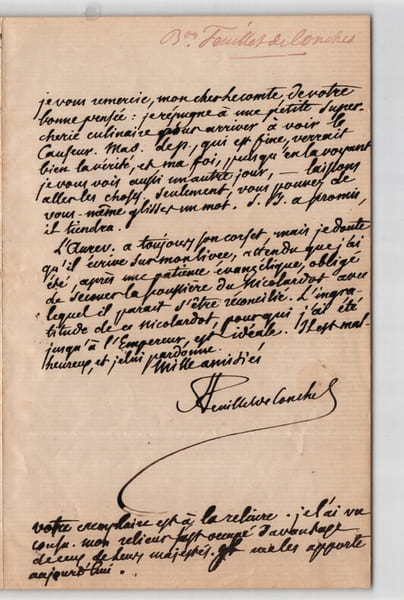 Bon Feuillet de Conches
je vous remercie, mon cher lecomte, de votre
bonne pensée : je répugne à une petite super-
cherie culinaire pour arriver à voir le
Causeur. Mad. qui est fine, verrait
bien la vérité, et ma foi, puisqu'en la voyant
je vous vois aussi un autre jour, — laissons
aller les choses, seulement, vous pouvez de
vous-même glisser un mot. S. B. a promis,
il tiendra.
L'Aurev. a toujours son corset, mais je doute
qu'il écrive sur mon livre, attendu que j'ai
été, après une patience évangélique, obligé
de secouer la poussière du Nicolardot avec
lequel il parait s'être réconcilié. L'ingra-
titude de ce Nicolardot, pour qui j'ai été
jusqu'à l'Empereur, est idéale. Il est mal-
heureux, et je lui pardonne.
Mille amitiés
F Feuillet de Conches
votre exemplaire est à la reliure. je l'ai vu
cousu. mon relieur s'est occupé d'avantage
de ceux de leurs majestés. les apporte
aujourd'hui.